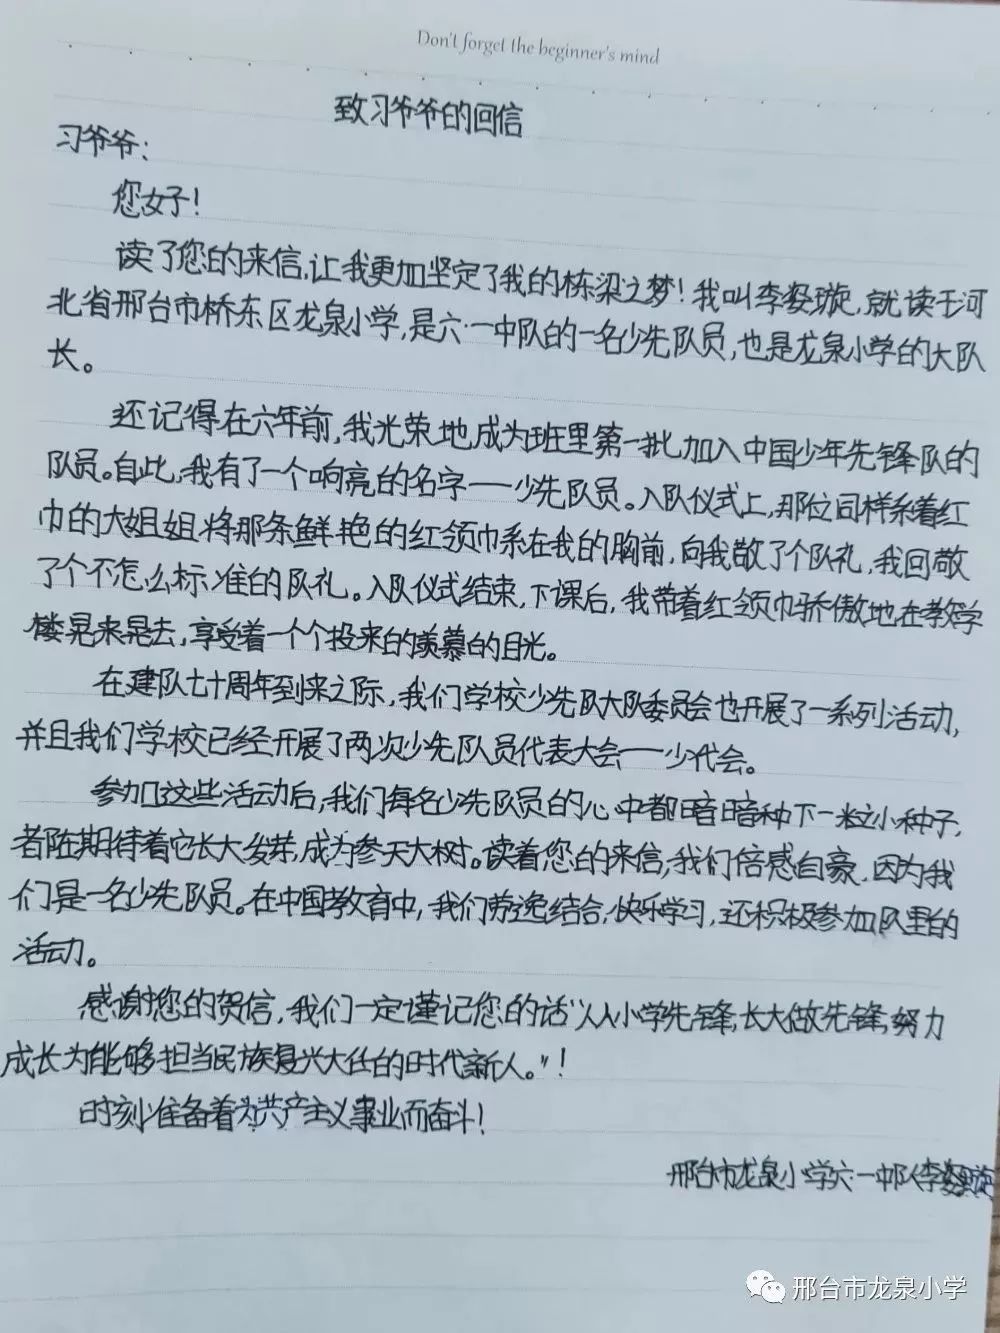 Don't forget the beginner's mind
致习爷爷的回信
习爷爷：
您好！
读了您的来信，让我更加坚定了我的栋梁之梦！我叫李姿璇，就读于河
北省邢台市桥东区龙泉小学，是六·一中队的一名少先队员，也是龙泉小学的大队
长。
还记得在六年前，我光荣地成为班里第一批加入中国少年先锋队的
队员。自此，我有了一个响亮的名字——少先队员。入队仪式上，那位同样系着红
巾的大姐姐将那条鲜艳的红领巾系在我的胸前，向我敬了个队礼，我回敬
了个不怎么标准的队礼。入队仪式结束，下课后，我带着红领巾骄傲地在教学
楼晃来晃去，享受着一个个投来的羡慕的目光。
在建队七十周年到来之际，我们学校少先队大队委员会也开展了一系列活动，
并且我们学校已经开展了两次少先队员代表大会——少代会。
参加这些活动后，我们每名少先队员的心中都暗暗种下一粒小种子，
都在期待着它长大发芽，成为参天大树。读着您的来信，我们倍感自豪，因为我
们是一名少先队员。在中国教育中，我们劳逸结合，快乐学习，还积极参加队里的
活动。
感谢您的贺信，我们一定谨记您的话“从小学先锋，长大做先锋，努力
成长为能够担当民族复兴大任的时代新人。”！
时刻准备着为共产主义事业而奋斗！
邢台市龙泉小学六·一中队李姿璇
邢台市龙泉小学